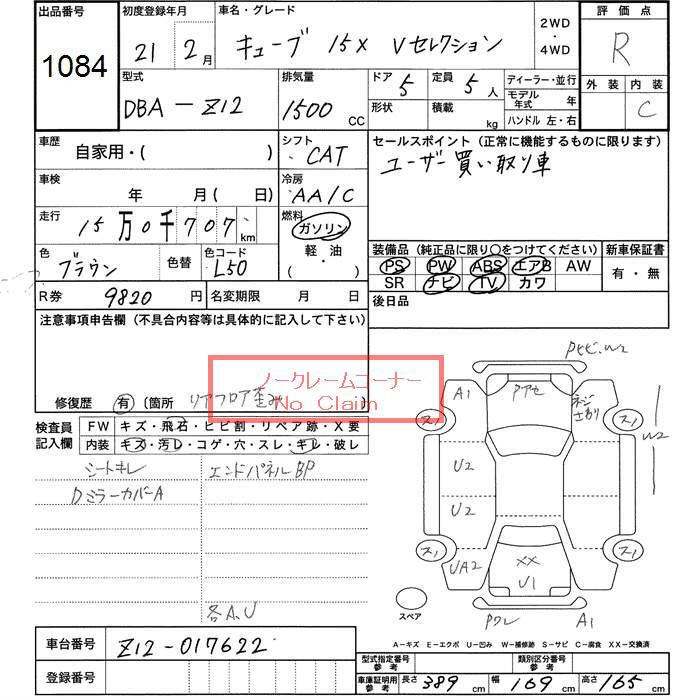 出品番号
1084
初度登録年月
21 年 2 月
車名・グレード
キューブ 15X Vセレクション
2WD
・
4WD
評価点
R
外装 内装
C
型式
DBA-Z12
排気量
1500 CC
ドア 5
形状
定員 5 人
積載 kg
ディーラー・並行
モデル年式 年
ハンドル 左・右
車歴
自家用・( )
シフト
CAT
車検
年 月 ( 日)
冷房
AA/C
走行
15万0千707 km
燃料
ガソリン
・
軽・油
( )
色
ブラウン
色替
色コード
L50
R券 9820 円
名変期限 月 日
セールスポイント (正常に機能するものに限ります)
ユーザー買い取り車
装備品 (純正品に限り○をつけてください)
新車保証書
PS PW ABS エアB AW
SR ナビ TV カワ
有・無
後日品
注意事項申告欄 (不具合内容等は具体的に記入して下さい)
ノークレームコーナー
No Claim
修復歴 有 (箇所 リアフロア歪み
検査員
記入欄
FW キズ・飛石・ヒビ割・リペア跡・X要
内装 キズ・汚レ・コゲ・穴・スレ・キレ・破レ
シートキレ
Dミラーカバー A
エンドパネルBP
各A、U
Pヒビ、W2
A1
Pアセ
ネジ
さがり
ス1
ス1
W2
U2
U2
ス1
ス1
UA2
XX
U1
スペア
Pワレ
A1
A-キズ E-エクボ U-凹み W-補修跡 S-サビ C-腐食 XX-交換済
車台番号
Z12-017622
登録番号
型式指定番号
参考
類別区分番号
参考
車庫証明用
参考
長さ 389 cm 幅 169 cm 高さ 165 cm